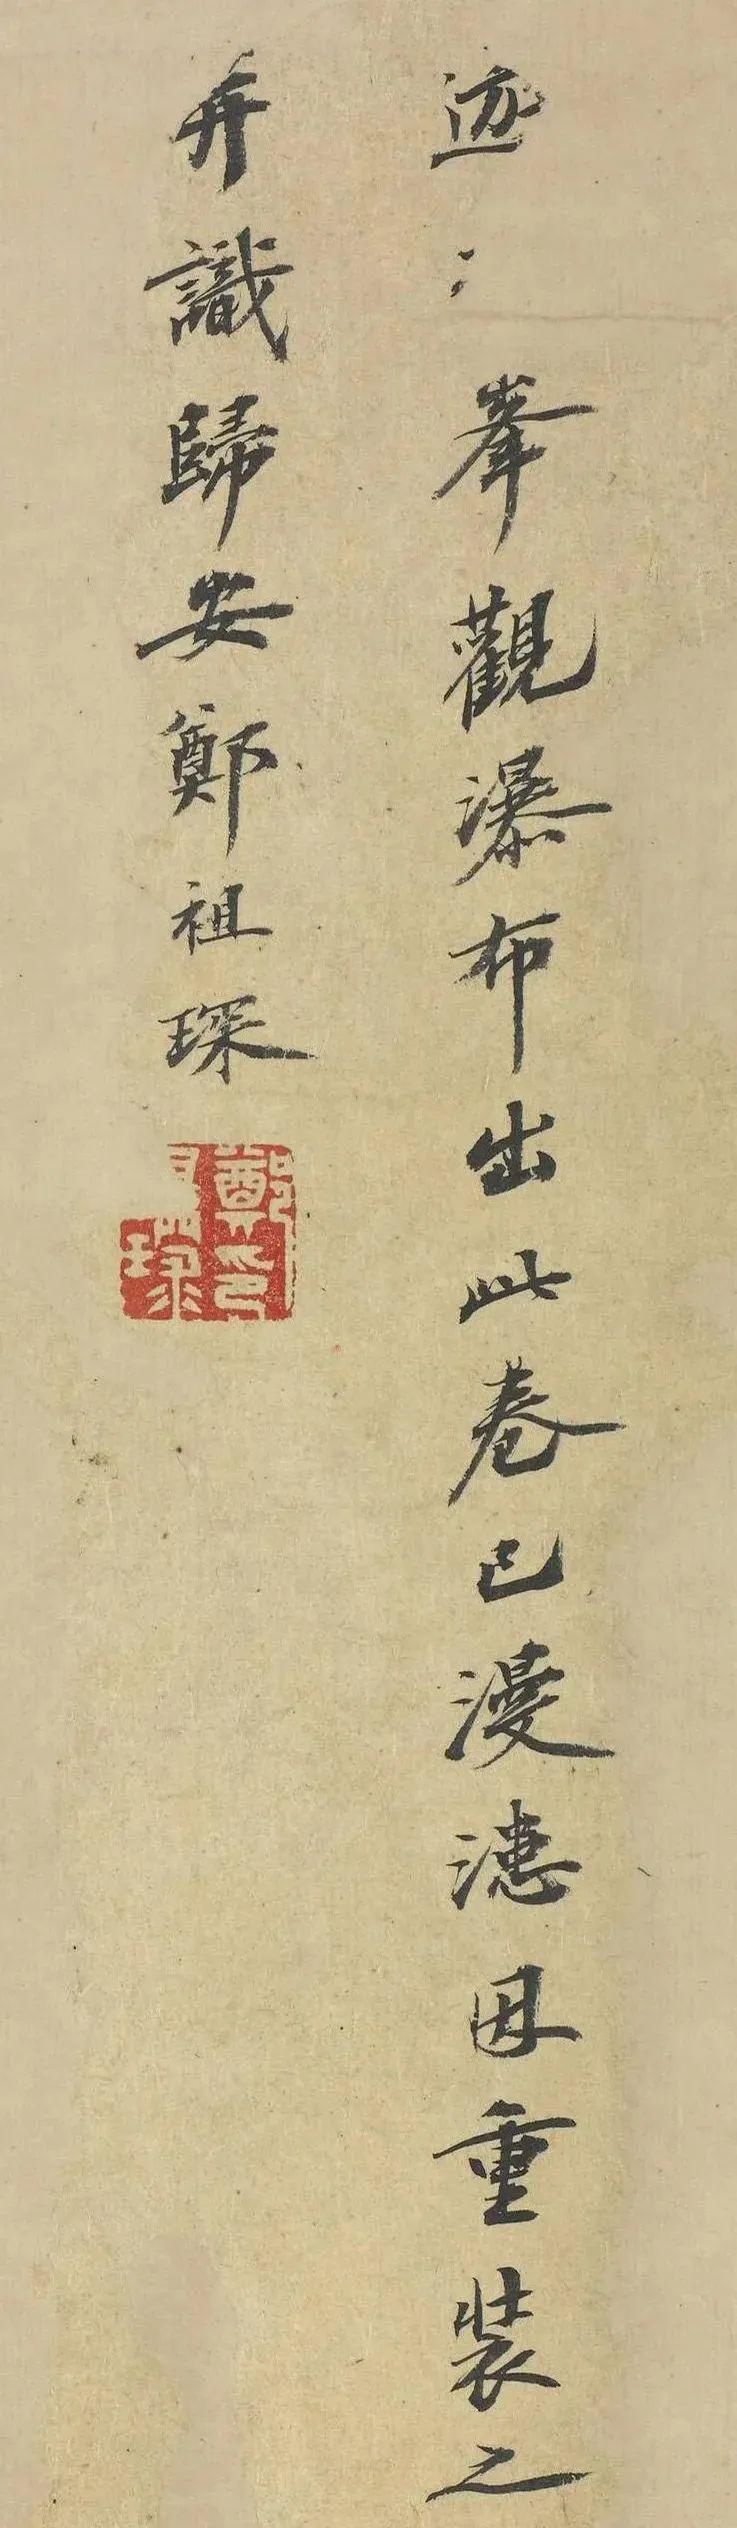 迹峯觀瀑布出此卷已漫漶因重裝之
并識歸安鄭祖琛
鄭印祖琛